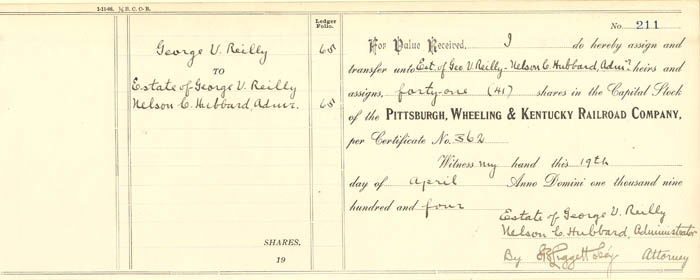 1-11-98. ½ B. C. O. R.
Ledger Folio.
George V. Reilly 65
TO
Estate of George V. Reilly
Nelson C. Hubbard, Admr. 65
SHARES.
19
No. 211
For Value Received, I do hereby assign and
transfer unto Est. of Geo V. Reilly - Nelson C. Hubbard, Admr. heirs and
assigns, forty-one (41) shares in the Capital Stock
of the PITTSBURGH, WHEELING & KENTUCKY RAILROAD COMPANY,
per Certificate No. 362
Witness my hand this 19th
day of April Anno Domini one thousand nine
hundred and four
Estate of George V. Reilly
Nelson C. Hubbard, Administrator
By Liggett Attorney